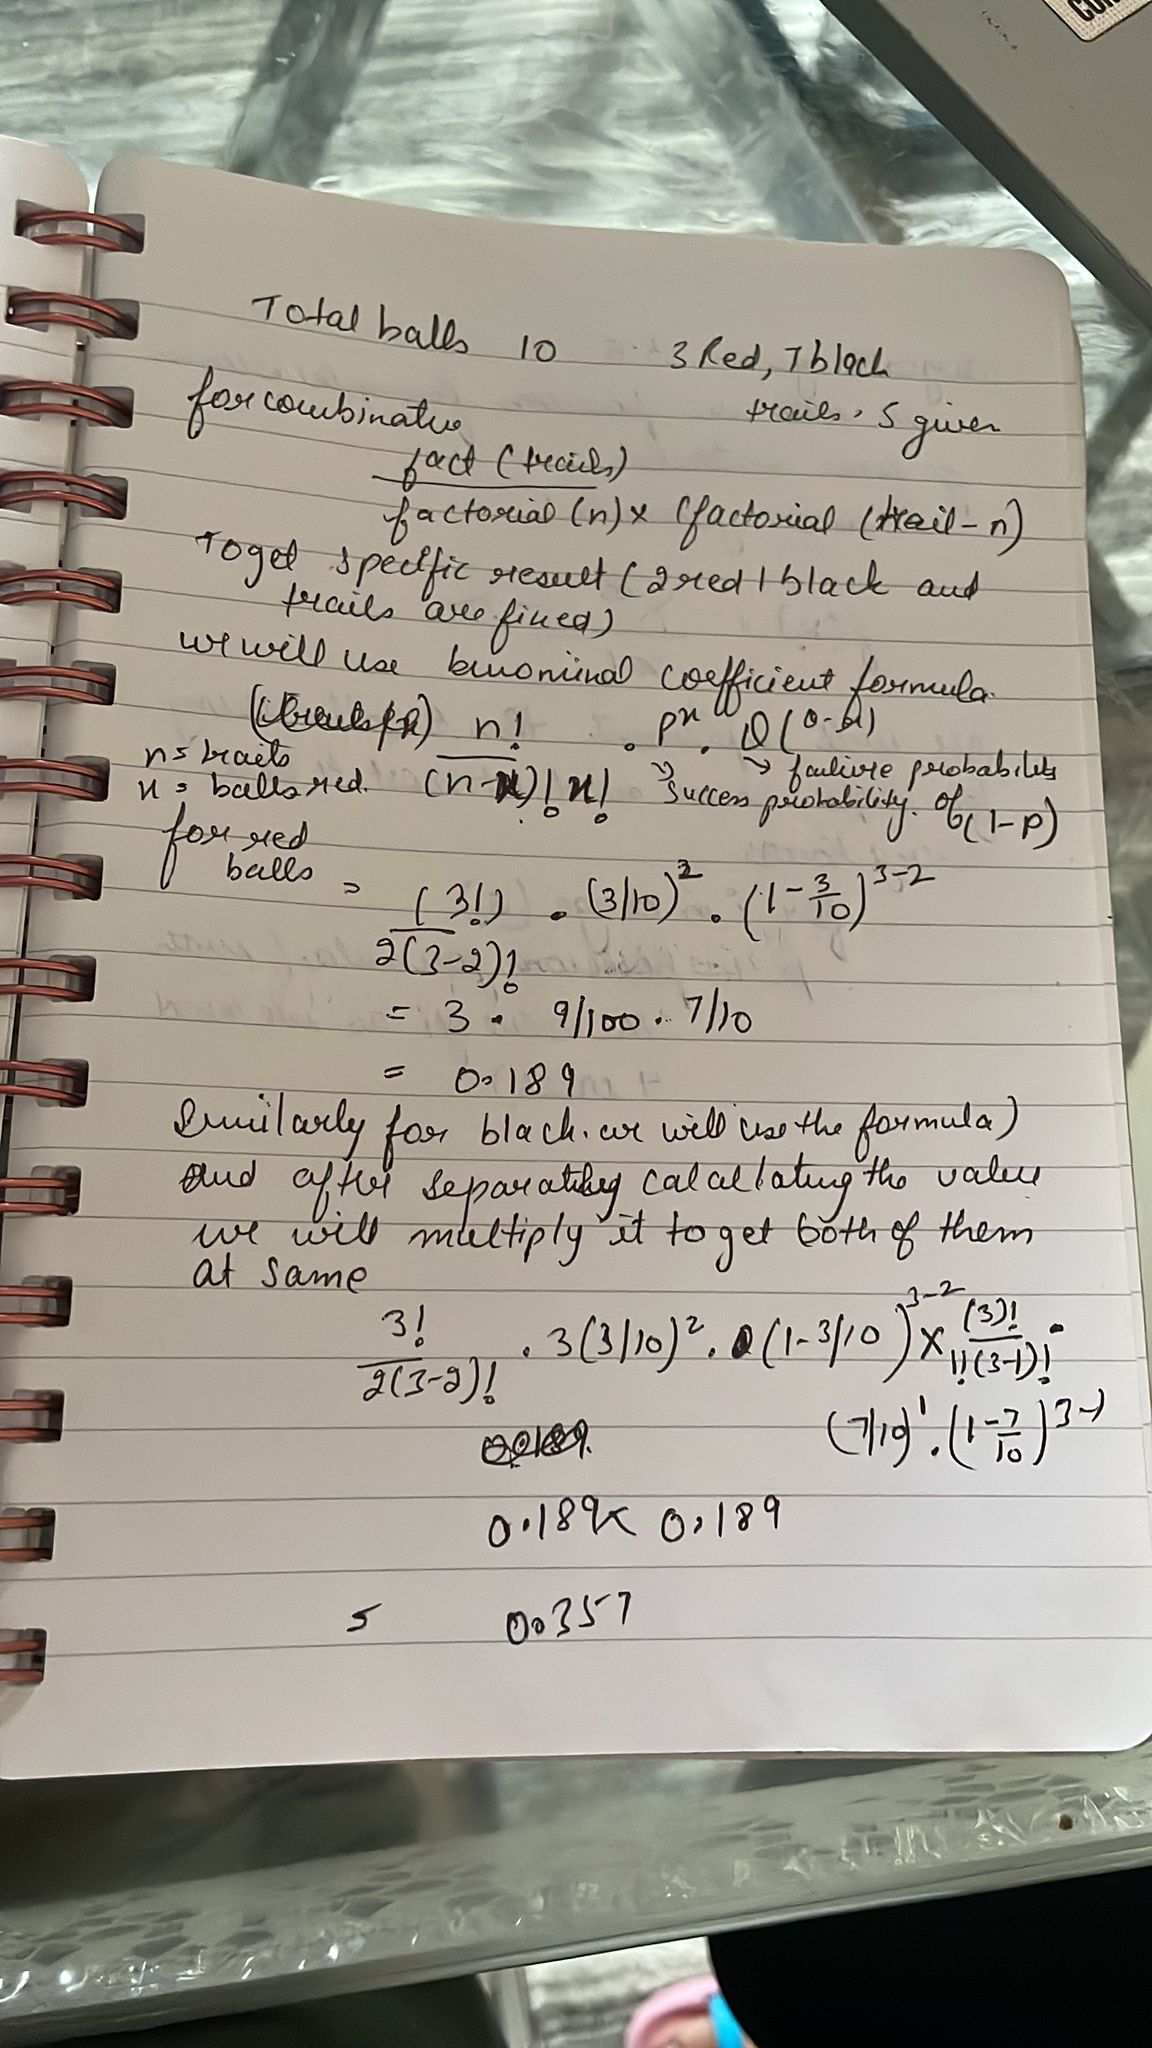 Total balls 10 3 Red, 7 black
for combinative trails, 5 given
fact (trails)
factorial (n) x (factorial (trail - n)
To get specific result (2 red 1 black and
trails are fixed)
we will use binominal coefficient formula.
n! . p^x . Q(n-x)
n = trails (n-x)! x! → success probability. → failure probability
x = balls red. of (1-p)
for red
balls = (3!) . (3/10)^2 . (1 - 3/10)^3-2
2(3-2)!
= 3 . 9/100 . 7/10
= 0.189
Similarly for black. we will use the formula)
and after separating calculating the value
we will multiply it to get both of them
at same
3! . 3(3/10)^2 . (1-3/10)^3-2 x (3)! .
2(3-2)! 1!(3-1)!
(7/10)^1 . (1 - 7/10)^3-1
0.189 x 0.189
= 0.357